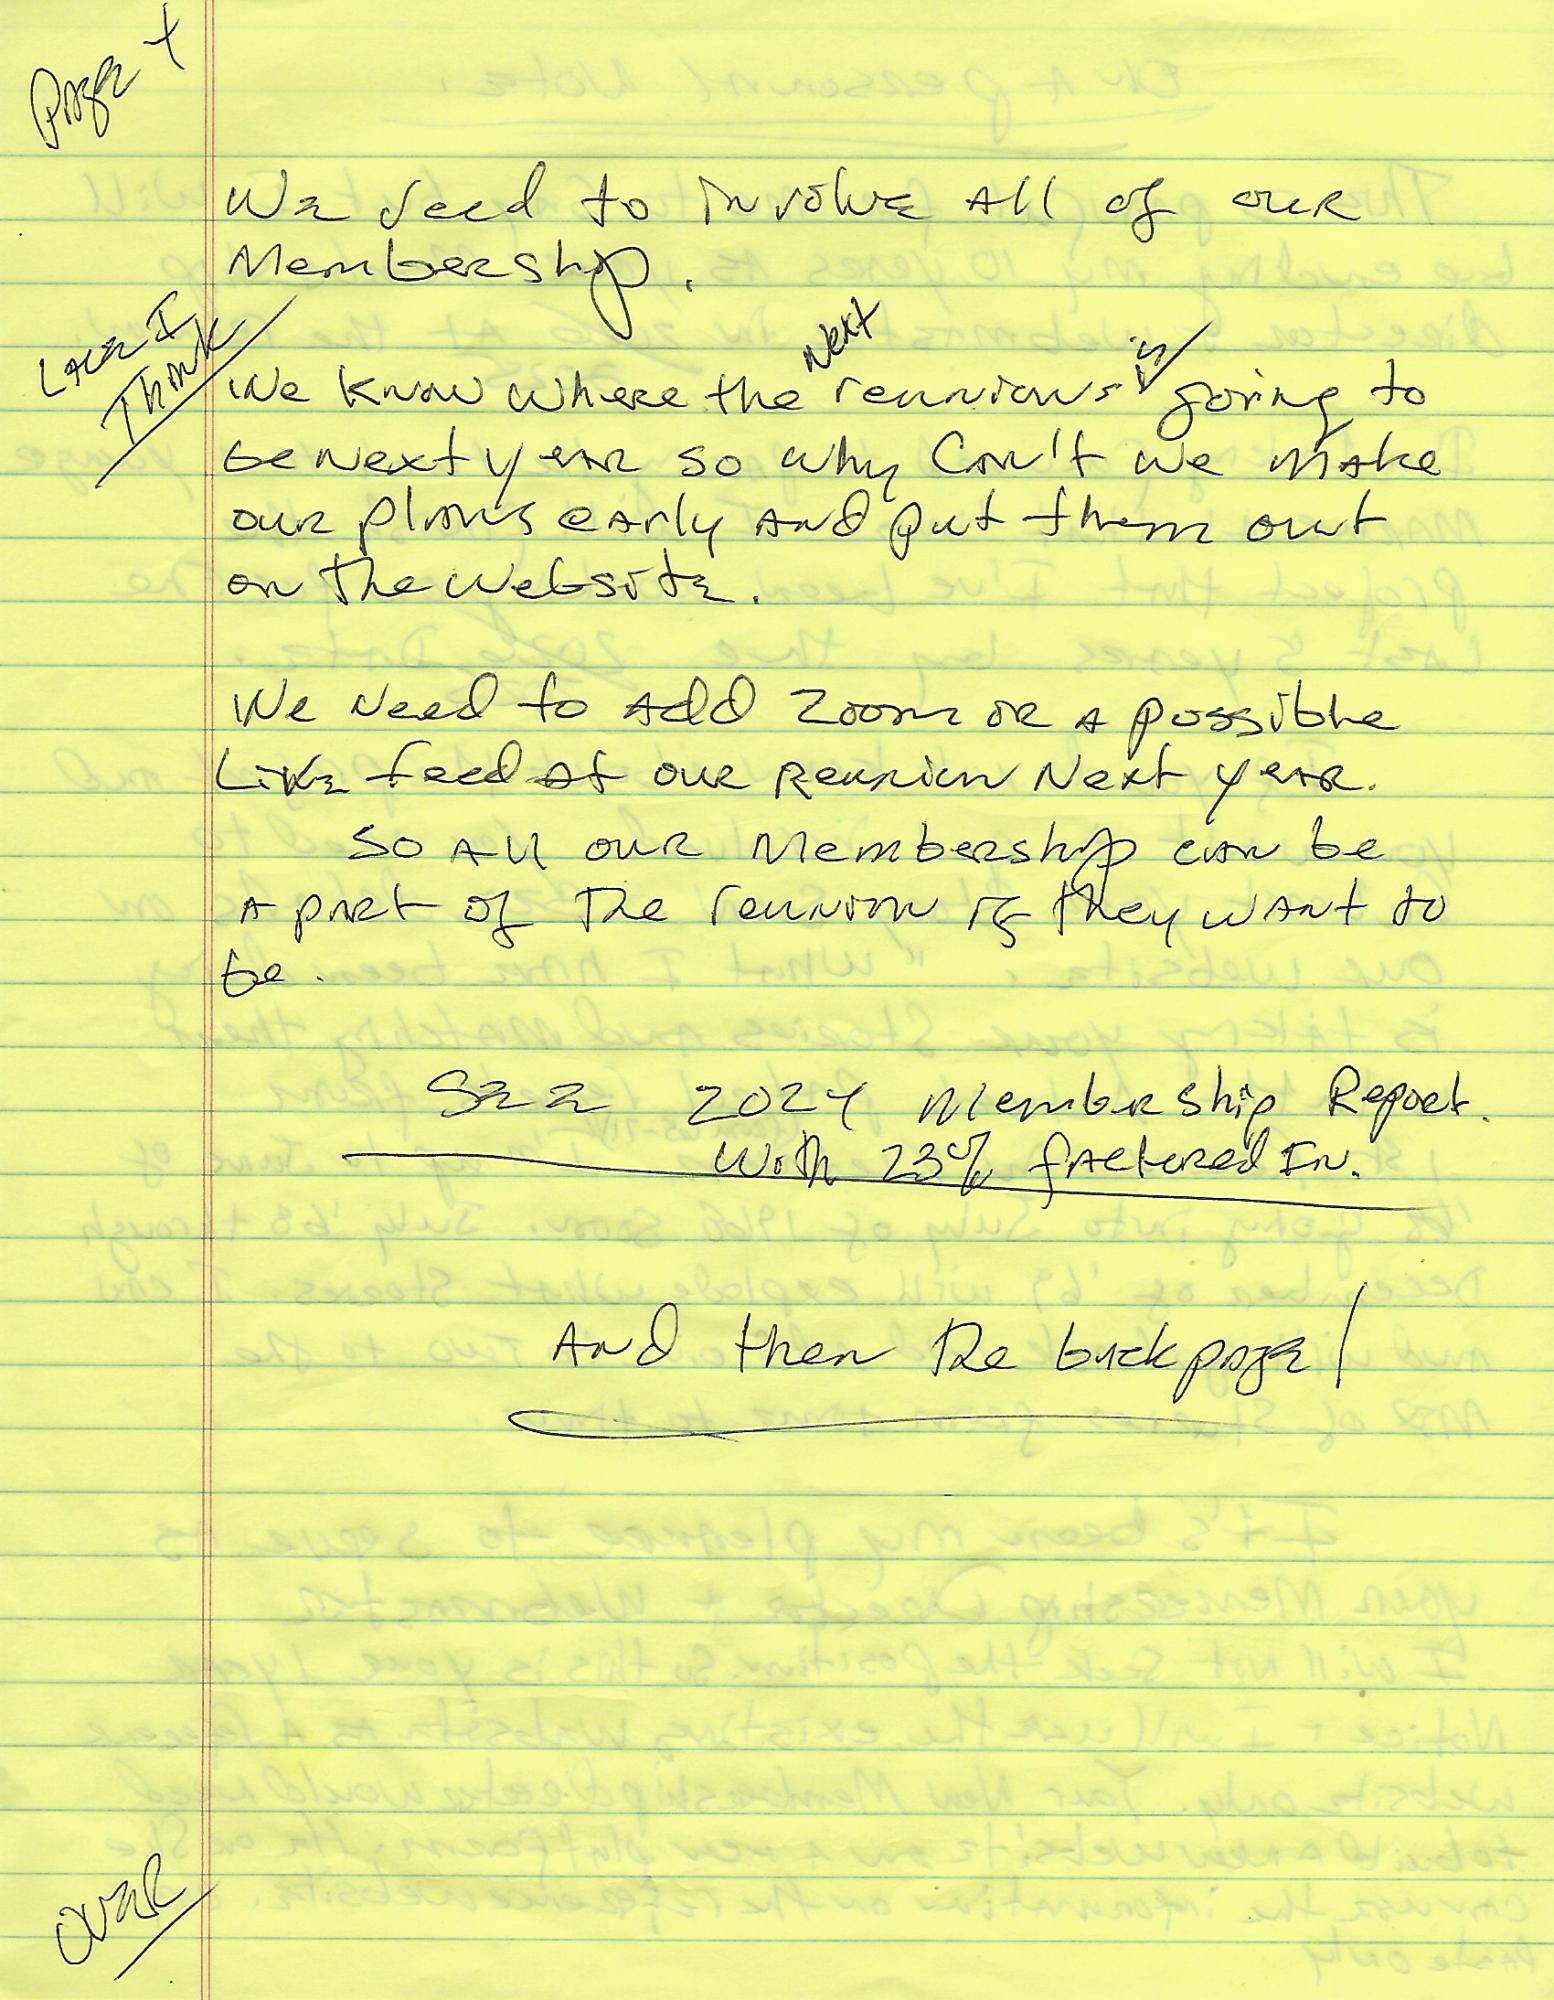 Page 4
We need to involve All of our
Membership.
Least I
Think
We know where the Next reunions is going to
be Next year so why Can't we make
our plans early And put them out
on the website.
We Need to Add Zoom or a possible
Like feed at our Reunion Next year.
So All our Membership can be
A part of the reunion if they want to
be.
See 2024 Membership Report.
With 23% factered In.
And then The back page!
over